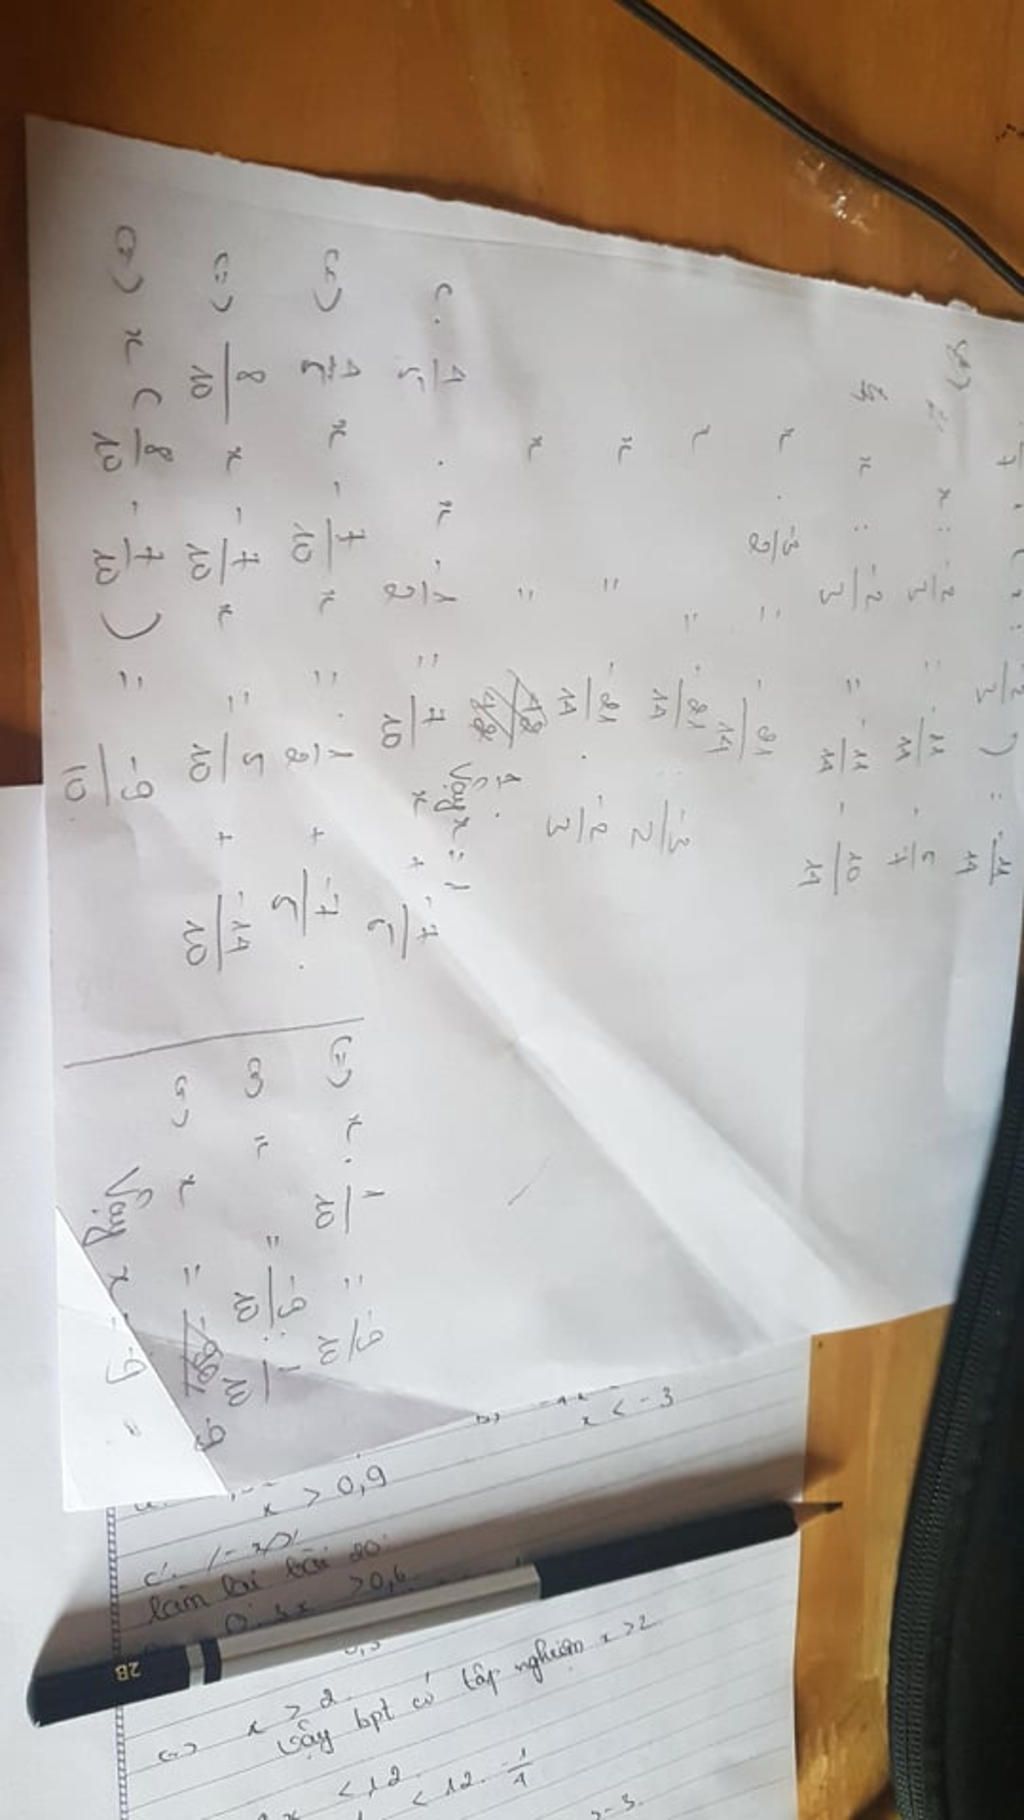 x : -2/3 = -11/14 - 5/7
x : -2/3 = -11/14 - 10/14
x . -3/2 = -21/14
x = -21/14 . -3/2
x = -21/14 . -2/3
x = 1. Vậy x = 1
c. 4/5 . x - 1/2 = 7/10 x + -7/5
<=> 4/5 x - 7/10 x = 1/2 + -7/5
<=> 8/10 x - 7/10 x = 5/10 + -14/10
<=> x ( 8/10 - 7/10 ) = -9/10
<=> x . 1/10 = -9/10
<=> x = -9/10 : 1/10
<=> x = -9
Vậy x = -9
x < -3
x > 0,9
làm lại bài 20:
0.3x > 0,6
<=> x > 2
Vậy bpt có tập nghiệm x > 2
< 12
< 12 . 1/4
2B